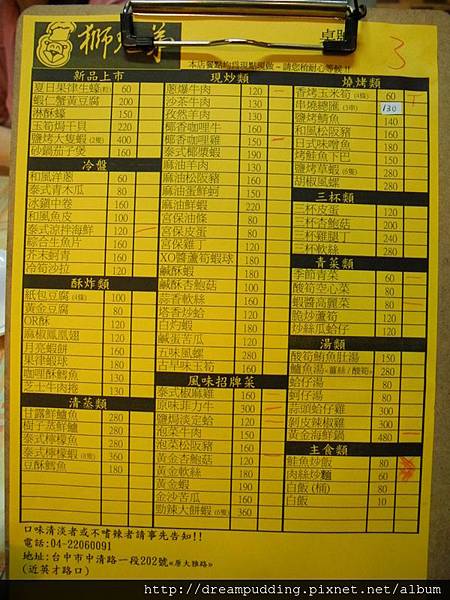 桌號
3
本店餐點均爲現點現做~請您稍耐心等候!!
新品上市
夏日果律生蠔(粒) 60
蝦仁蟹黃豆腐 200
淋酥蠔 150
玉筍焗干貝 220
鹽烤大隻蝦(2隻) 400
砂鍋茄子煲 160
冷盤
和風洋蔥 60
泰式青木瓜 80
冰鎮中卷 160
和風魚皮 100
泰式涼拌海鮮 120
綜合生魚片 160
芥末蚵青 160
冷筍沙拉 120
酥炸類
紙包豆腐(4條) 100
黃金豆腐 80
OR酥 120
麻椒鳳凰翅 120
月亮蝦餅 160
果律蝦球 180
咖哩酥鱈魚 130
芝士牛肉捲 130
清蒸類
甘露鮮鱸魚 280
樹子蒸鮮鱸 280
泰式檸檬魚 280
泰式檸檬蝦(8隻) 360
豆酥鱈魚 180
現炒類
蔥爆牛肉 120
沙茶牛肉 130
孜然羊肉 130
椰香咖哩牛 160
椰香咖哩雞 150
泰式椰漿蝦 190
麻油羊肉 180
麻油松阪豬 160
麻油蛋鮮蚵 150
麻油鮮蝦 220
宮保油條 80
宮保皮蛋 80
宮保雞丁 120
XO醬蘆筍蝦球 180
鹹酥蝦 180
鹹酥杏鮑菇 100
蒜香軟絲 160
塔香炒蛤 120
白灼蝦 180
鹹蛋苦瓜 120
五味風螺 280
古早味玉筍 160
風味招牌菜
泰式椒麻雞 160
原味菲力牛 300
鹽焗淡定蛤 120
泡菜牛肉 150
泡菜松阪豬 160
黃金杏鮑菇 120
黃金軟絲 180
黃金蝦 190
金沙苦瓜 160
勁辣大餅蝦(6隻) 360
燒烤類
香烤玉米筍(4條) 60
串燒總匯(3串) 130
鹽烤鯖魚 140
和風松阪豬 160
日式味噌魚 180
烤鮭魚下巴 150
鹽烤草蝦(6隻) 280
胡椒風螺 280
三杯類
三杯皮蛋 120
三杯杏鮑菇 200
三杯雞腿 240
三杯軟絲 280
青菜類
季節青菜 60
酸筍空心菜 80
蝦醬高麗菜 80
脆炒蘆筍 120
炒絲瓜蛤仔 120
湯類
酸筍鮪魚肚湯 150
鱸魚湯«薑絲/酸筍» 280
蛤仔湯 80
蚵仔湯 80
蒜頭蛤仔雞 300
剝皮辣椒雞 300
黃金海鮮鍋 480
主食類
鮭魚炒飯 80
肉絲炒麵 60
白飯(桶) 80
白飯 10
口味清淡者或不嗜辣者請事先告知!!
電話:04-22060091
地址:台中市中清路一段202號«原大雅路»
(近英才路口)
http://dreampudding.pixnet.net/album